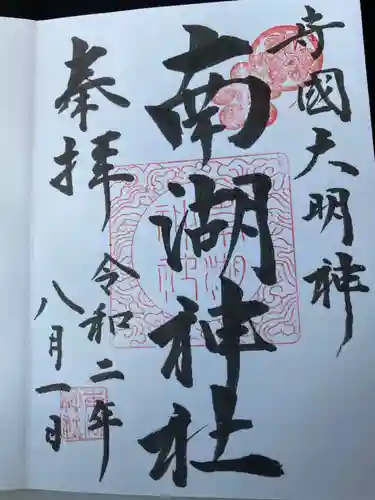 寿國大明神
南湖神社
奉拝
令和二年
八月一日